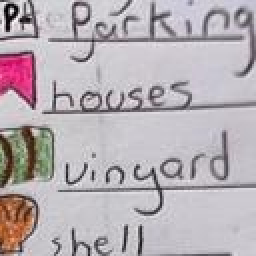 P Parking
houses
vinyard
shell